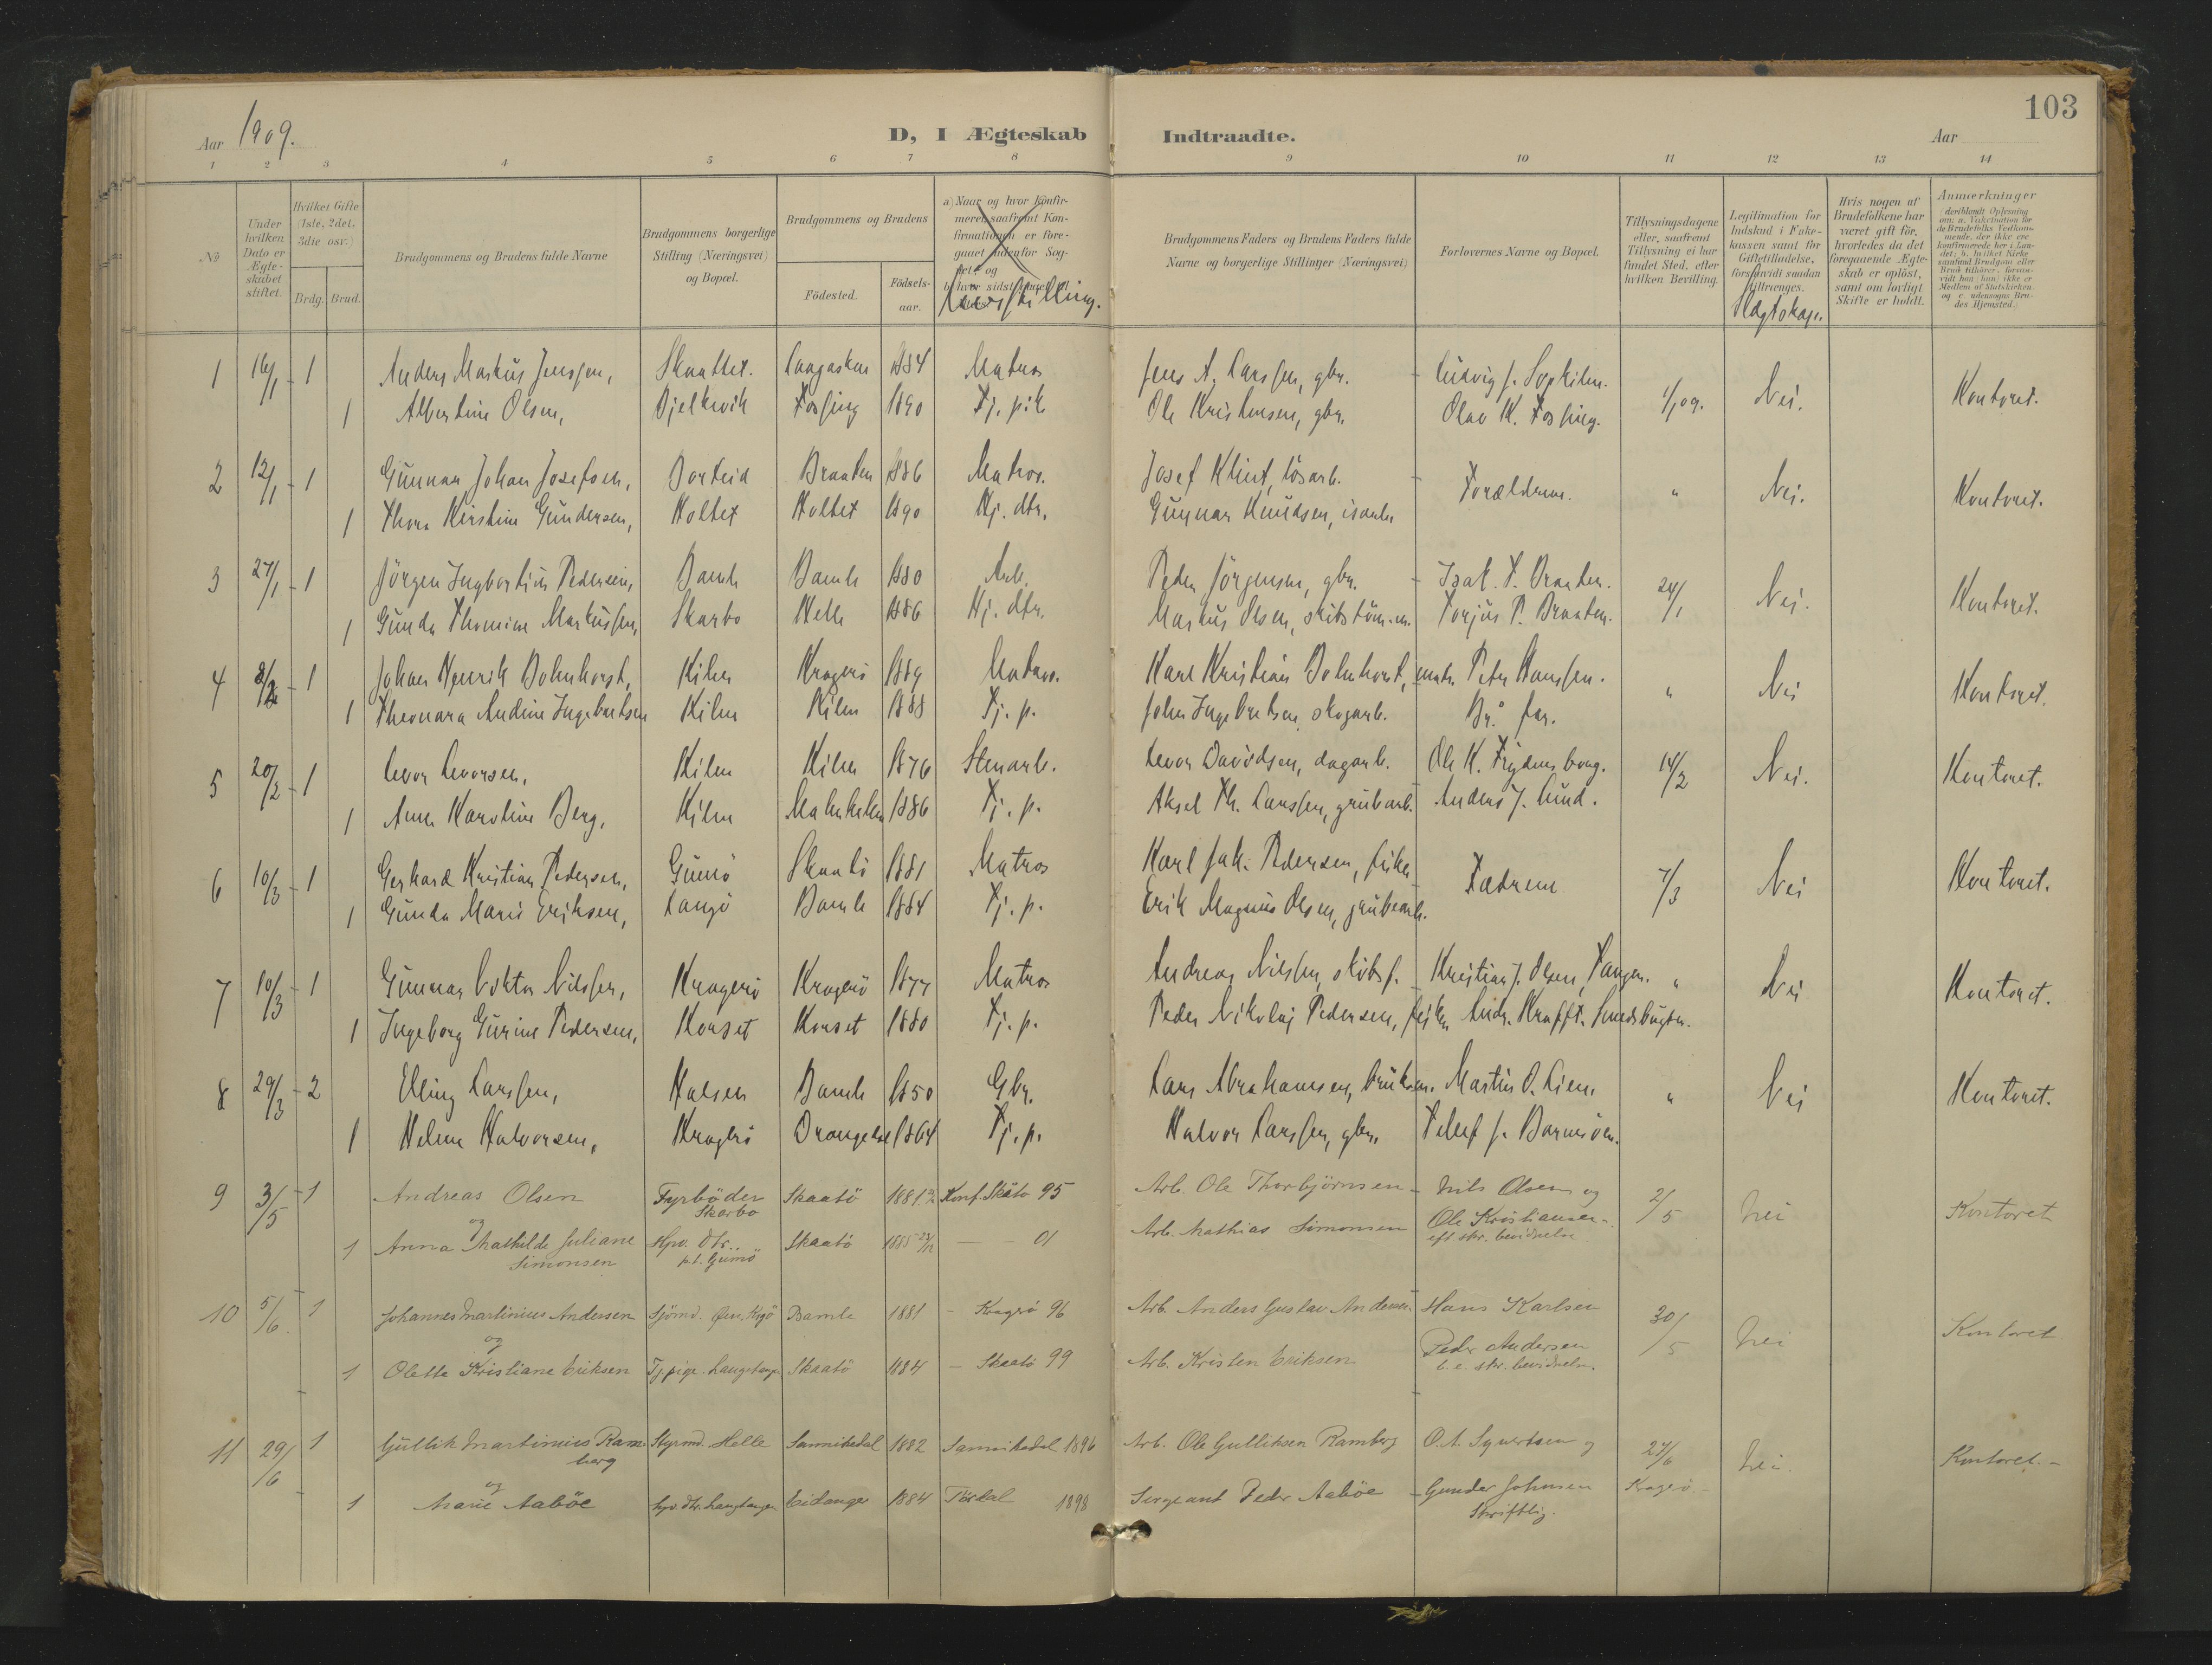 103
Aar 1909.
D, I Ægteskab Indtraadte.
Aar
1 2 3 4 5 6 7 8 9 10 11 12 13 14
No
Under hvilken Dato er Ægteskabet stiftet.
Hvilket Gifte (1ste, 2det, 3die osv.)
Brdg. Brud.
Brudgommens og Brudens fulde Navne
Brudgommens borgerlige Stilling (Næringsvei) og Bopæl.
Brudgommens og Brudens
Fødested.
Fødselsaar.
a) Naar og hvor Konfirmeret, saafremt Konfirmationen er foregaaet udenfor Sognet; og
Livsstilling.
Brudgommens Faders og Brudens Faders fulde Navne og borgerlige Stillinger (Næringsvei)
Forlovernes Navne og Bopæl.
Tillysningsdagene eller, saafremt Tillysning ei har fundet Sted, efter hvilken Bevilling.
Legitimation for Indskud i Enkekassen samt for Giftetilladelse, forsaavidt saadan tiltrænges.
Slægtskap.
Hvis nogen af Brudefolkene har været gift før, hvorledes da det foregaaende Ægteskab er opløst, samt om lovligt Skifte er holdt.
Anmærkninger
1 16/1 - 1 Anders Markus Jenssen, Skaattet. Langasken 1884 Matros Jens A. Larssen, gbr. - Ludvig J. Sopkilen. 1/1 09. Nei. Kontoret.
1 Albertine Olsen, Bjelkevik Fossing 1890 Tj. pik Ole Kristensen, gbr. Olav K. Fossing.
2 12/1 - 1 Gunnar Johan Josefsen, Borteid Braaten 1886 Matros. Josef Klint, løsarb. - Forældrene. " Nei. Kontoret.
1 Thora Kirstine Gundersen, Holtet Holtet 1890 Hj. dtr. Gunnar Knudsen, isarb.
3 27/1 - 1 Jörgen Ingbortius Pedersen, Bamle Bamle 1880 Arb. Peder Jörgensen, gbr. - Isak T. Braaten. 24/1 Nei. Kontoret.
1 Gunda Thomine Markussen, Skarbo Helle 1886 Hj. dtr. Markus Olsen, skibstöm.m. Torjus P. Braaten.
4 - 1 Johan Henrik Bohnhorst, Kilen Kragerö 1889 Matros. Karl Kristian Bohnhorst, matr. Peter Hanssen. " Nei Kontoret.
1 Theonara Andine Ingebretsen Kilen Kilen 1888 Tj. p. Johan Ingebretsen, skogarb. Br.s far.
5 20/2 - 1 Levor Levorsen, Kilen Kilen 1876 Stenarb. Levor Davidsen, dagarb. Ole K. Frydensborg. 14/2 Nei. Kontoret.
1 Anna Karoline Berg, Kilen Malmhelen 1886 Tj. p. Aksel Th. Larssen, grubearb. Anders J. Lund.
6 10/3 - 1 Gerhard Kristian Pedersen, Gumö Skaatö 1881 Matros Karl Jak. Pedersen, fisker Fædrene 7/3 Nei Kontoret.
1 Gunda Marie Eriksen, Langö Bamle 1884 Tj. p. Erik Magnus Olsen, grubearb.
7 10/3 - 1 Gunnar Viktor Nilssen, Kragerö Kragerö 1877 Matros Andreas Nilssen, skibsf. - Kristian J. Olsen, Tangen. " Nei Kontoret.
1 Ingeborg Gurine Pedersen, Korset Korset 1880 Tj. p. Peder Nikolaj Pedersen, fisker Andr. Krafft. Smedsbugten.
8 29/3 - 2 Elling Larssen, Halsen Bamle 1850 Gbr. Lars Abrahamsen, bruksm. Martin O. Lien. " Nei Kontoret.
1 Helene Halvorsen, Kragerö Drangedal 1864 Tj. p. Halvor Larssen, gbr. Tellef J. Barmöen.
9 3/5 - 1 Andreas Olsen Fyrböder Skarbo Skaatö 1881 Konf. Skåtö 95 Arb. Ole Thorbjörnsen - Nils Olsen og 2/5 Nei Kontoret
og
1 Anna Mathilde Juliane Simonsen Hjv. dtr. p.t. Gumö Skaatö 1885 - - 01 Arb. Mathias Simonsen Ole Kristiansen
eft. skr. bevidnelse
10 5/6 1 Johannes Martinius Andersen Sjömd. Öen, Krgö Bamle 1881 - Kragerö 96 Arb. Anders Gustav Andersen. Hans Karlsen 30/5 Nei Kontoret
og
1 Olette Kristiane Eriksen Tj. pige. Langetangen Skaatö 1884 - Skaatö 99 Arb. Kristen Eriksen Peder Andersen
b. e. skr. bevidnelse.
11 29/6 1 Gullik Martinius Ramberg Styrmd. Helle Sannikedal 1882 Sannikedal 1896 Arb. Ole Gulliksen Ramberg O. A. Syvertsen og 27/6 Nei. Kontoret. -
og
1 Marie Aaböe Hjv. dtr. Langtangen Eidanger 1884 Tördal 1898 Sergeant Peder Aaböe - Gunder Johnsen Kragerö. -
Skriftlig.